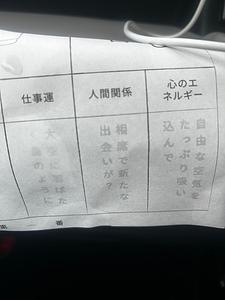 仕事運
人間関係
心のエ
ネルギー
大空に羽ばた
く鳥のように
相席で新たな
出会いが？
自由な空気を
たっぷり吸い
込んで
一番